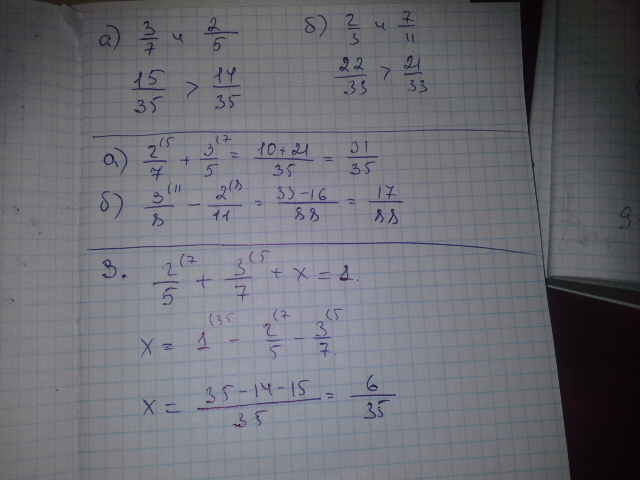 а) 3/7 и 2/5 б) 2/3 и 7/11
15/35 > 14/35 22/33 > 21/33
а) 2/7 (5 + 3/5 (7 = 10+21/35 = 31/35
б) 3/8 (11 − 2/11 (8 = 33−16/88 = 17/88
3. 2/5 (7 + 3/7 (5 + x = 1.
x = 1 (35 − 2/5 (7 − 3/7 (5
x = 35−14−15/35 = 6/35